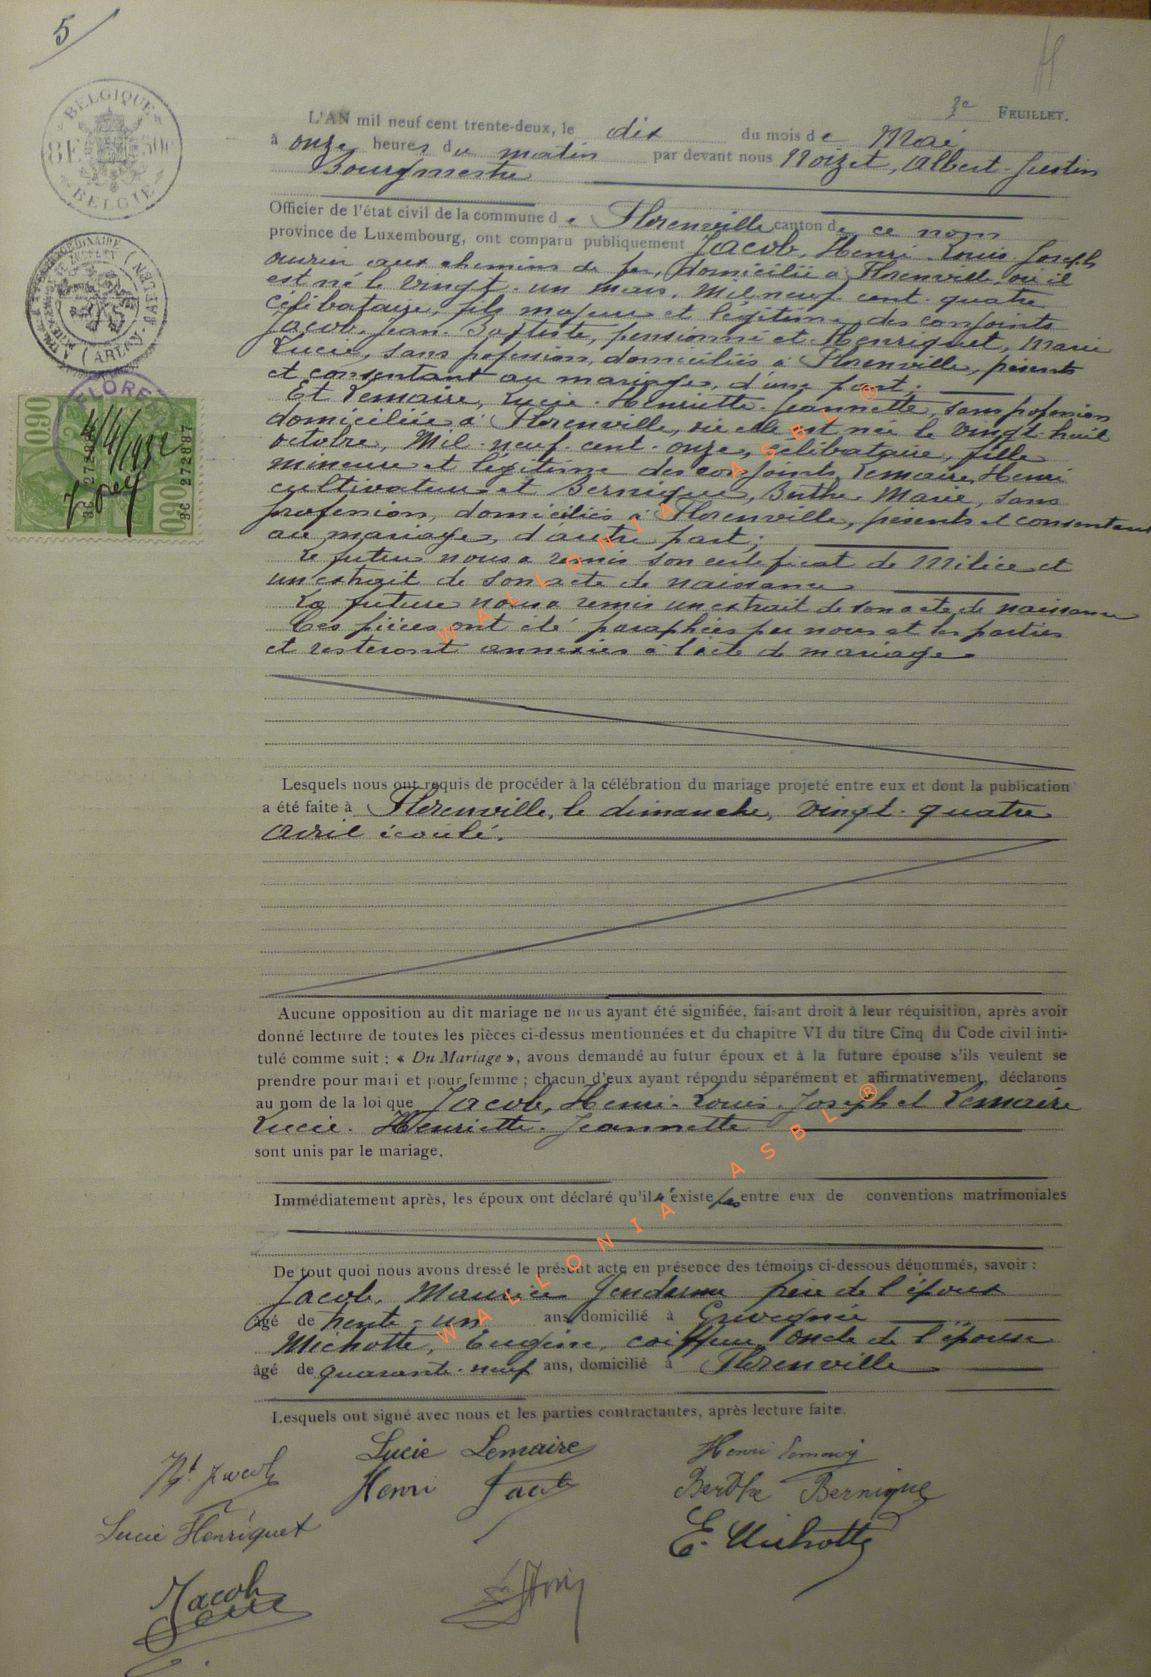 5
3e FEUILLET.
BELGIQUE
8F 50c
BELGIE
L'AN mil neuf cent trente-deux, le dix du mois de Mai
à onze heures du matin par devant nous Noizet, Albert-Justin
Bourgmestre
Officier de l'état civil de la commune de Florenville canton de ce nom
province de Luxembourg, ont comparu publiquement Jacob, Henri-Louis-Joseph
ouvrier aux chemins de fer, domicilié à Florenville, où il
est né le vingt-un mars, Mil neuf cent-quatre
célibataire, fils majeur et légitime des conjoints
Jacob-Jean-Baptiste, pensionné et Henriquet, Marie
Lucie, sans profession, domiciliés à Florenville, présents
et consentant au mariage, d'une part;
Et Lemaire, Lucie-Henriette-Jeannette, sans profession
domiciliée à Florenville, où elle est née le vingt-huit
octobre, Mil-neuf-cent-onze, célibataire, fille
mineure et légitime des conjoints Lemaire, Henri
cultivateur et Bernique, Berthe-Marie, sans
profession, domiciliés à Florenville, présents et consentant
au mariage, d'autre part;
Le futur nous a remis son certificat de Milice et
un extrait de son acte de naissance
La future nous a remis un extrait de son acte de naissance
Ces pièces ont été paraphées par nous et les parties
et resteront annexées à l'acte de mariage.
FLORE
14/4/1932
090
3C 272887
WALLONIA ASBL ®
Lesquels nous ont requis de procéder à la célébration du mariage projeté entre eux et dont la publication
a été faite à Florenville, le dimanche, vingt-quatre
avril écoulé.
Aucune opposition au dit mariage ne nous ayant été signifiée, faisant droit à leur réquisition, après avoir
donné lecture de toutes les pièces ci-dessus mentionnées et du chapitre VI du titre Cinq du Code civil inti-
tulé comme suit : « Du Mariage », avons demandé au futur époux et à la future épouse s'ils veulent se
prendre pour mari et pour femme ; chacun d'eux ayant répondu séparément et affirmativement, déclarons
au nom de la loi que Jacob, Henri-Louis-Joseph et Lemaire
Lucie-Henriette-Jeannette
sont unis par le mariage.
Immédiatement après, les époux ont déclaré qu'il n'existe pas entre eux de conventions matrimoniales
WALLONIA ASBL ®
De tout quoi nous avons dressé le présent acte en présence des témoins ci-dessous dénommés, savoir :
Jacob, Maurice Gendarme frère de l'époux
âgé de trente-un ans, domicilié à
Michotte, Eugène, coiffeur, oncle de l'épouse
âgé de quarante-neuf ans, domicilié à Florenville
Lesquels ont signé avec nous et les parties contractantes, après lecture faite.
Lucie Lemaire
Henri Jacob
Berthe Bernique
Lucie Henriquet
E. Michotte
Jacob